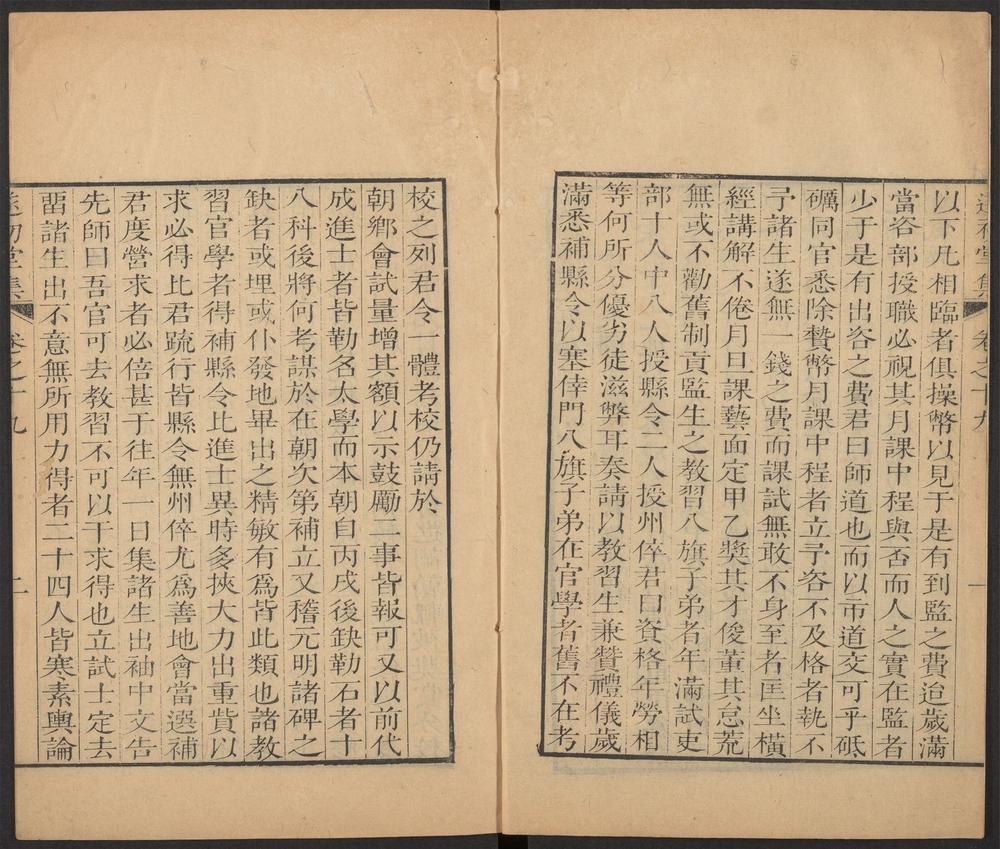 遂初堂集 卷之十九 一
以下凡相臨者俱操幣以見于是有到監之費迨歲滿
當咨部授職必視其月課中程與否而人之實在監者
少于是有出咨之費君曰師道也而以市道交可乎砥
礪同官悉除贄幣月課中程者立予咨不及格者執不
予諸生遂無一錢之費而課試無敢不身至者匡坐橫
經講解不倦月旦課藝面定甲乙獎其才俊董其怠荒
無或不勸舊制貢監生之教習八旗子弟者年滿試吏
部十人中八人授縣令二人授州倅君曰資格年勞相
等何所分優劣徒滋弊耳奏請以教習生兼贊禮儀歲
滿悉補縣令以塞倖門八旗子弟在官學者舊不在考
校之列君令一體考校仍請於
朝鄉會試量增其額以示鼓勵二事皆報可又以前代
成進士者皆勒名太學而本朝自丙戌後缺勒石者十
八科後將何考謀於在朝次第補立又稽元明諸碑之
缺者或埋或仆發地畢出之精敏有爲皆此類也諸教
習官學者得補縣令比進士異時多挾大力出重貲以
求必得比君疏行皆縣令無州倅尤爲善地會當選補
君度營求者必倍甚于往年一日集諸生出袖中文告
先師曰吾官可去教習不可以干求得也立試士定去
畱諸生出不意無所用力得者二十四人皆寒素輿論
遂初堂集 卷之十九 二